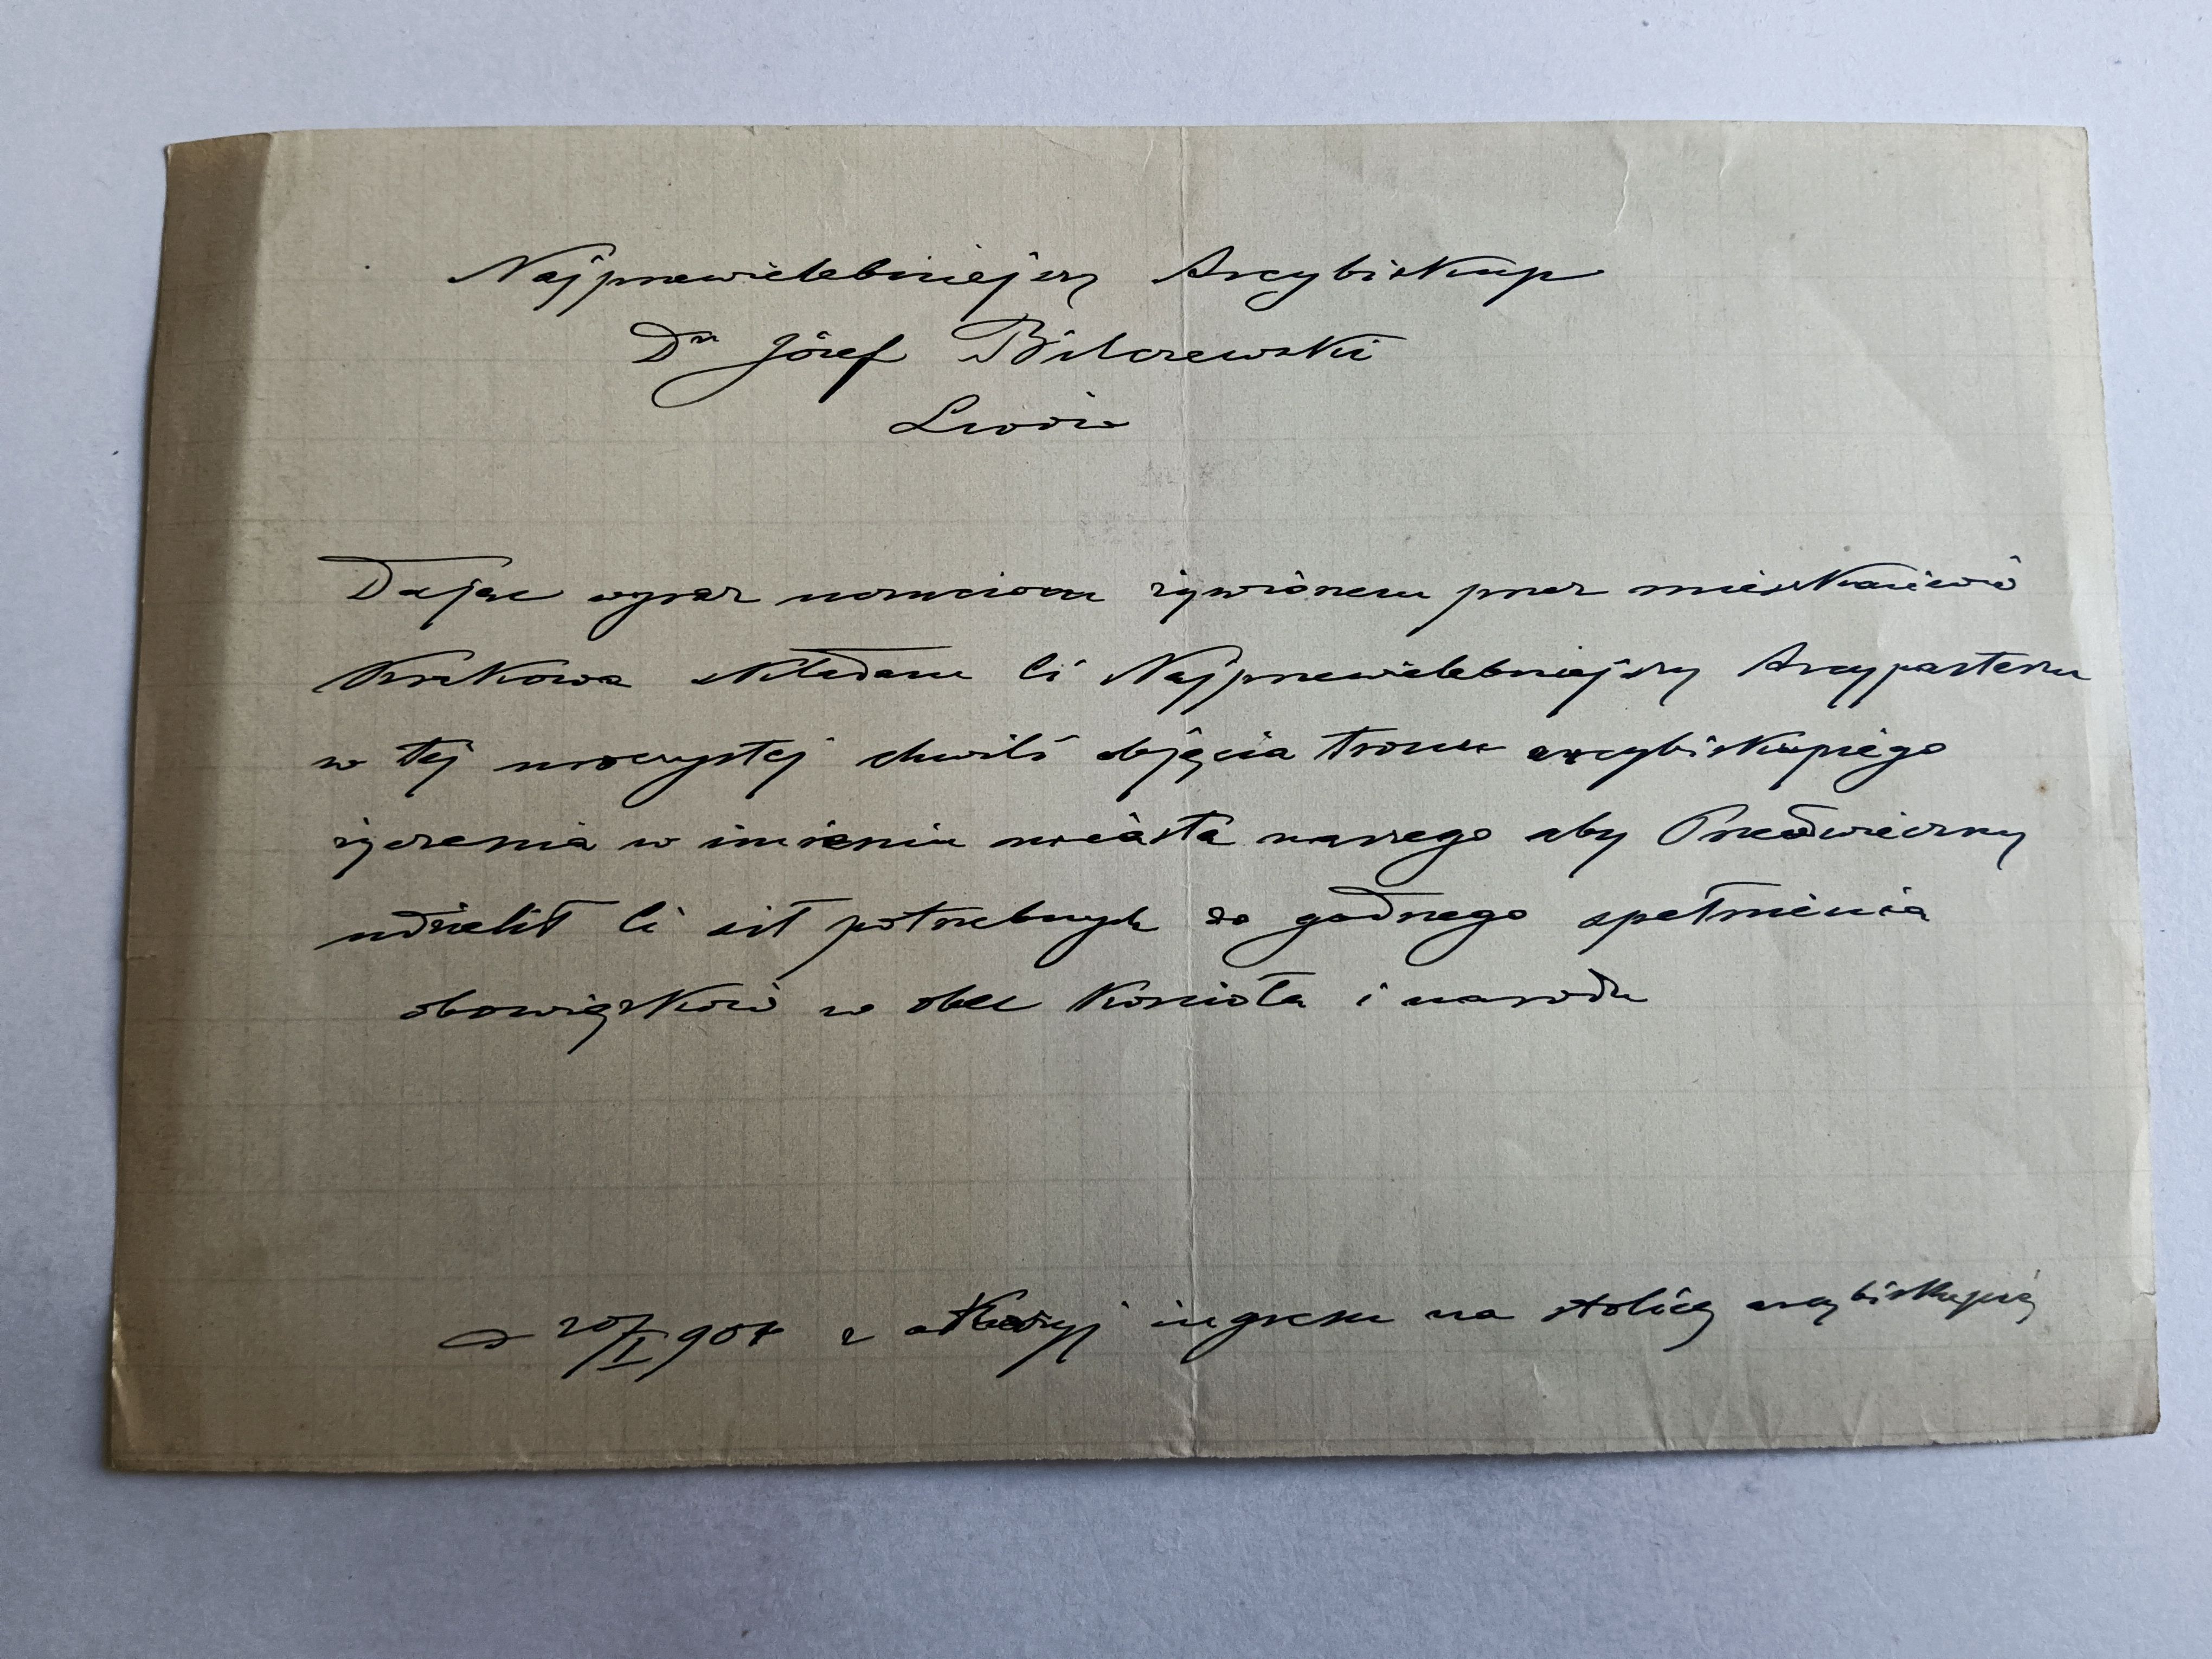 Najprzewielebniejszy Arcybiskup
Dr Józef Bilczewski
Lwów
Dając wyraz uczuciom żywionem przez mieszkańców
Krakowa składam Ci Najprzewielebniejszy Arcypasterzu
w tej uroczystej chwili objęcia tronu arcybiskupiego
życzenia w imieniu miasta naszego aby Przedwieczny
udzielił Ci sił potrzebnych do godnego spełnienia
obowiązków w obec Kościoła i narodu
d 20/I 901 z okazyi ingresu na stolicę arcybiskupią